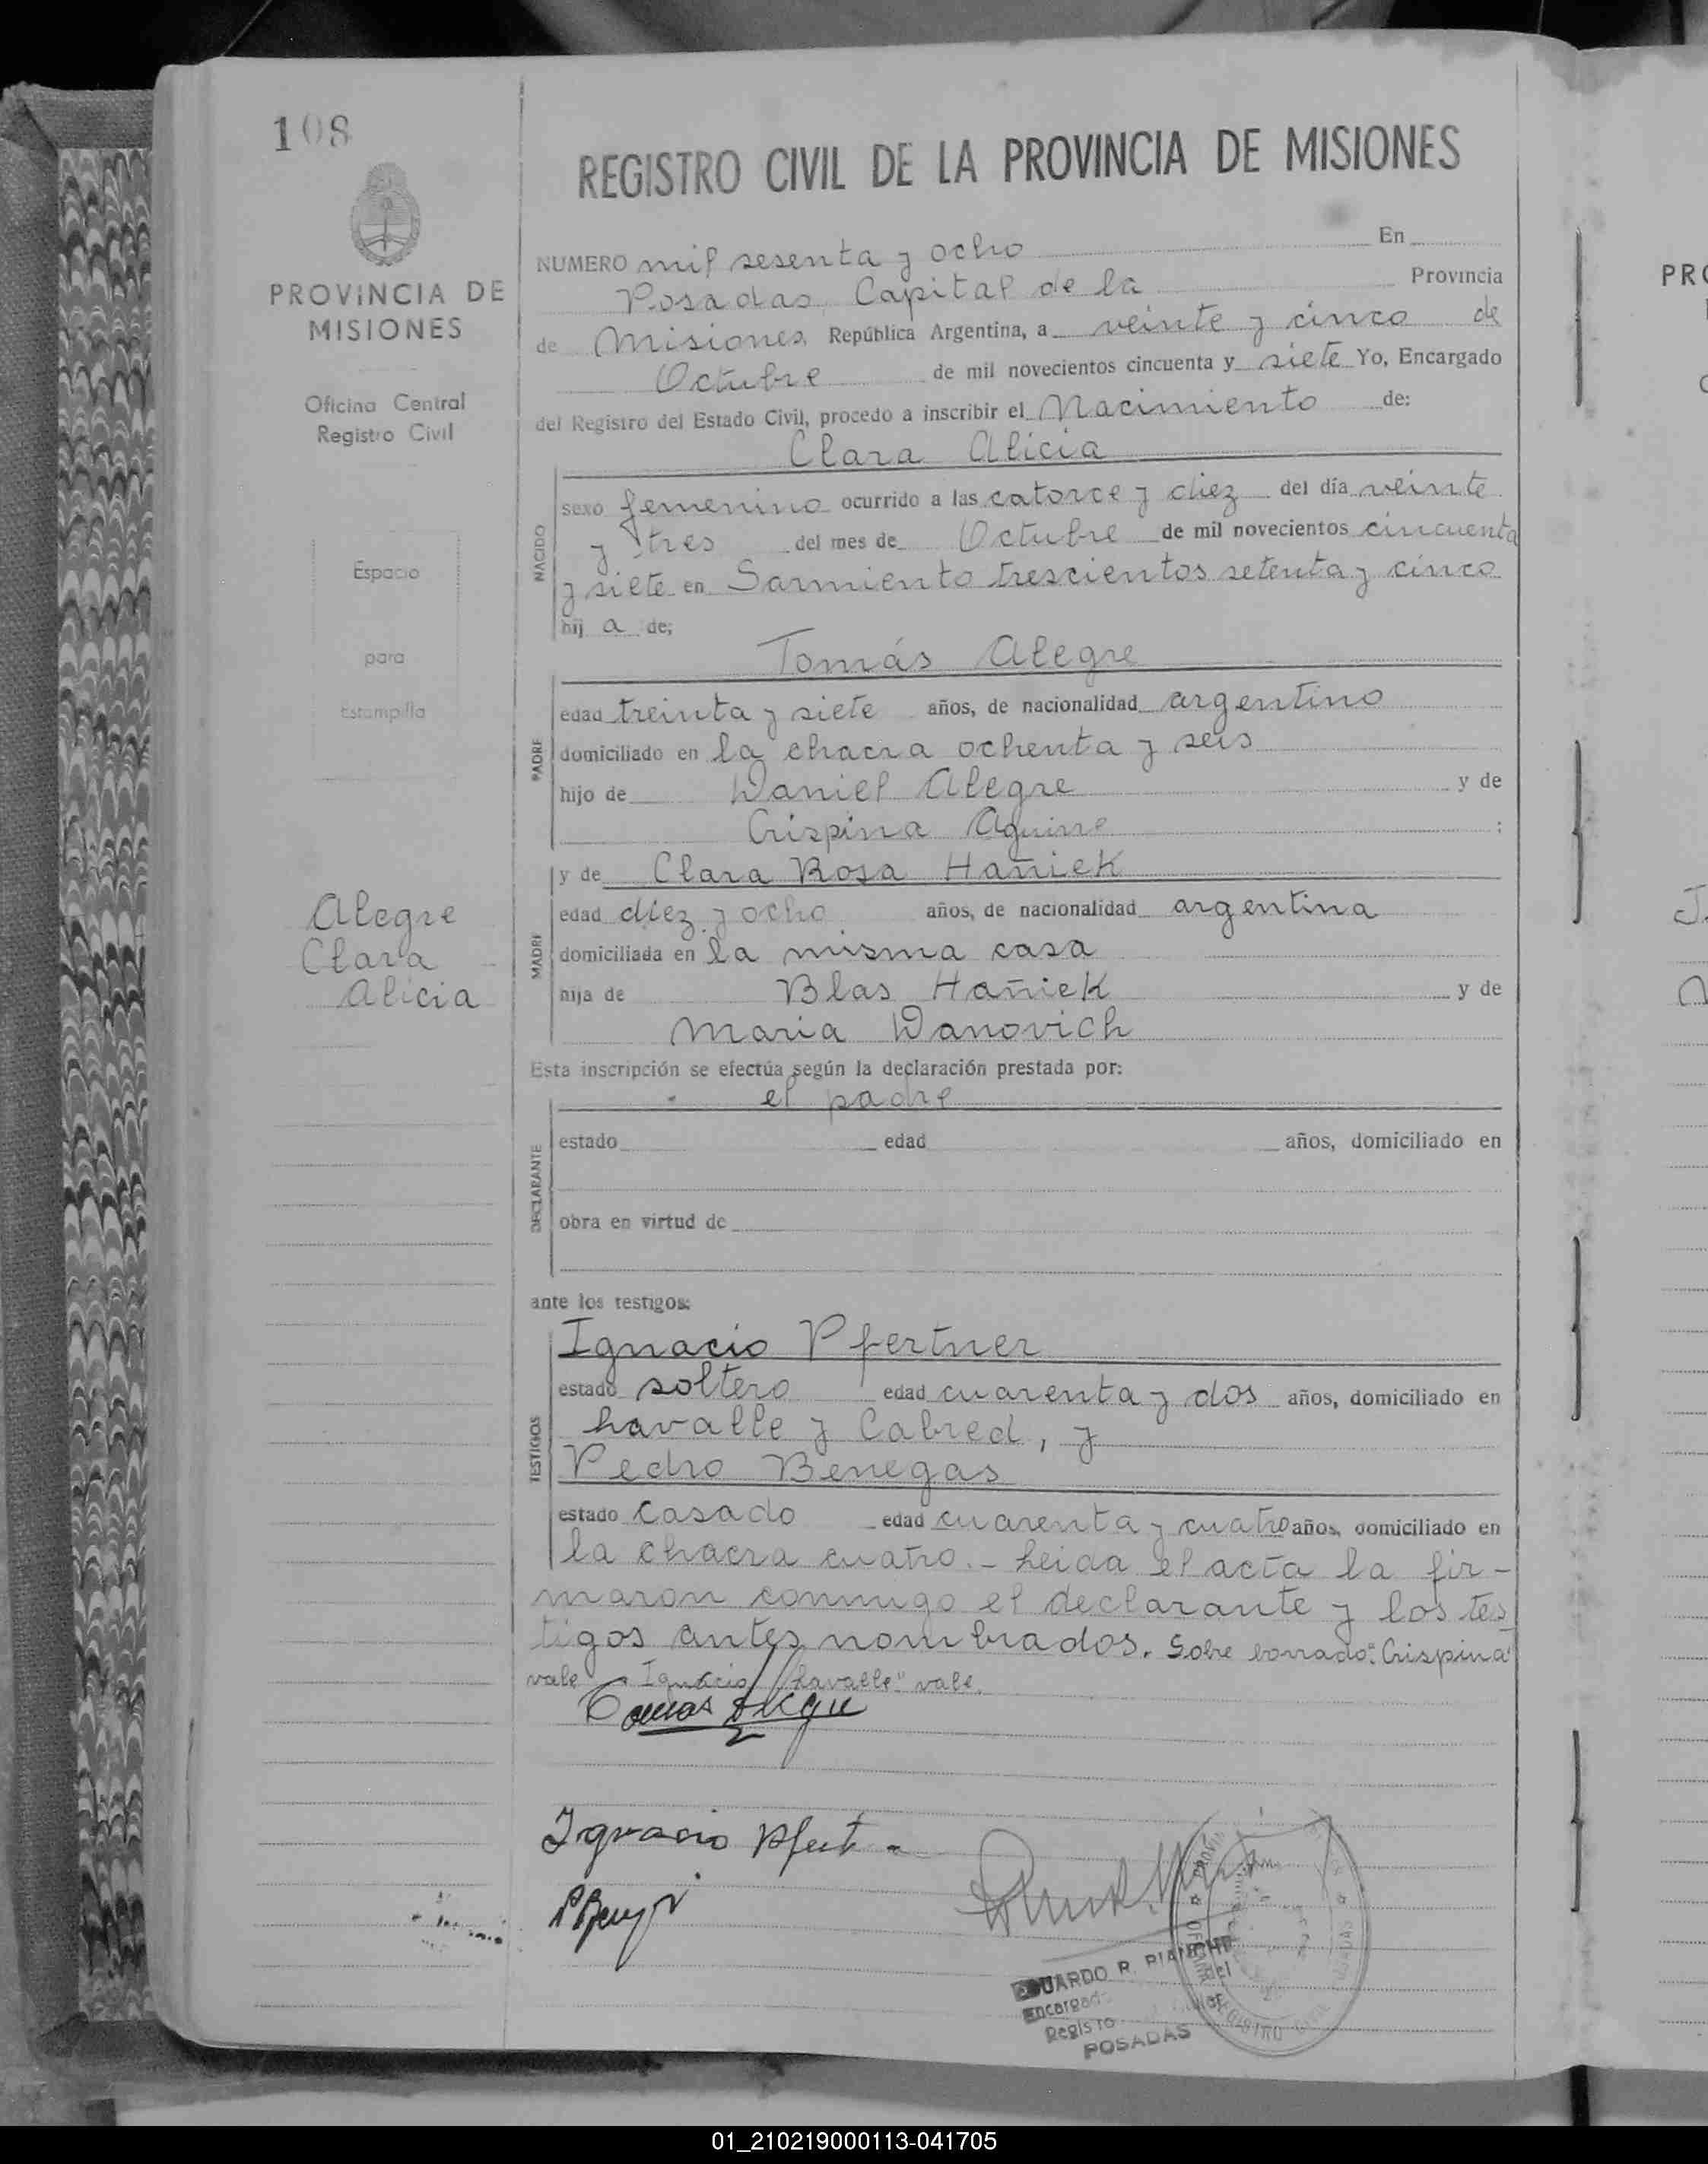 108
REGISTRO CIVIL DE LA PROVINCIA DE MISIONES
PROVINCIA DE
MISIONES
Oficina Central
Registro Civil
Espacio
para
Estampilla
Alegre
Clara
Alicia
NUMERO mil sesenta y ocho En
Posadas, Capital de la Provincia
de Misiones, República Argentina, a veinte y cinco de
Octubre de mil novecientos cincuenta y siete Yo, Encargado
del Registro del Estado Civil, procedo a inscribir el Nacimiento de:
Clara Alicia
NACIDO
sexo femenino ocurrido a las catorce y diez del día veinte
y tres del mes de Octubre de mil novecientos cincuenta
y siete en Sarmiento trescientos setenta y cinco
hij a de;
Tomás Alegre
PADRE
edad treinta y siete años, de nacionalidad argentino
domiciliado en la chacra ochenta y seis
hijo de Daniel Alegre y de
Crispina Aguirre :
y de Clara Rosa Hañiek
MADRE
edad diez y ocho años, de nacionalidad argentina
domiciliada en la misma casa
hija de Blas Hañiek y de
Maria Danovich
Esta inscripción se efectúa según la declaración prestada por:
el padre
DECLARANTE
estado edad años, domiciliado en
obra en virtud de
ante los testigos:
TESTIGOS
Ignacio Pfertner
estado soltero edad cuarenta y dos años, domiciliado en
Lavalle y Cabred, y
Pedro Benegas
estado casado edad cuarenta y cuatro años, domiciliado en
la chacra cuatro.- Leida el acta la fir-
maron conmigo el declarante y los tes
tigos antes nombrados. Sobre borrado: "Crispina"
vale " Ignacio / Lavalle" vale.
Tomas Alegre
Ignacio Pfert
EDUARDO R. PIANCHE
Encargado del
Registro
POSADAS
PRO
01_210219000113-041705